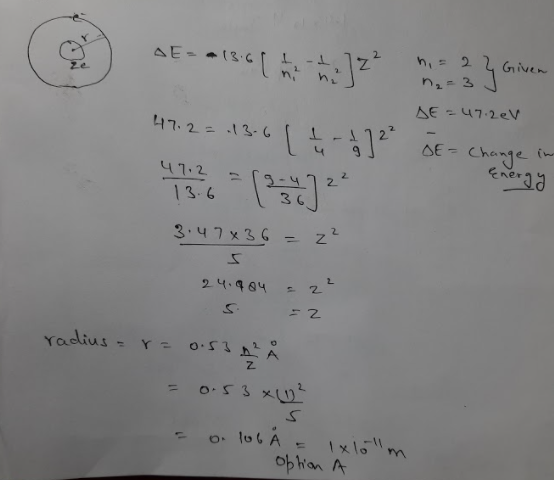 e-
r
ze
ΔE = -13.6 [ 1/n₁² - 1/n₂² ] Z²
n₁ = 2
n₂ = 3 } Given
ΔE = 47.2eV
ΔE = Change in
Energy
47.2 = .13.6 [ 1/4 - 1/9 ] z²
47.2/13.6 = [ 9-4/36 ] z²
3.47 x 36/5 = z²
= z²
5. = z
radius = r = 0.53 n²/z Å
= 0.53 x (1)²/5
= 0.106 Å = 1 x 10⁻¹¹ m
option A